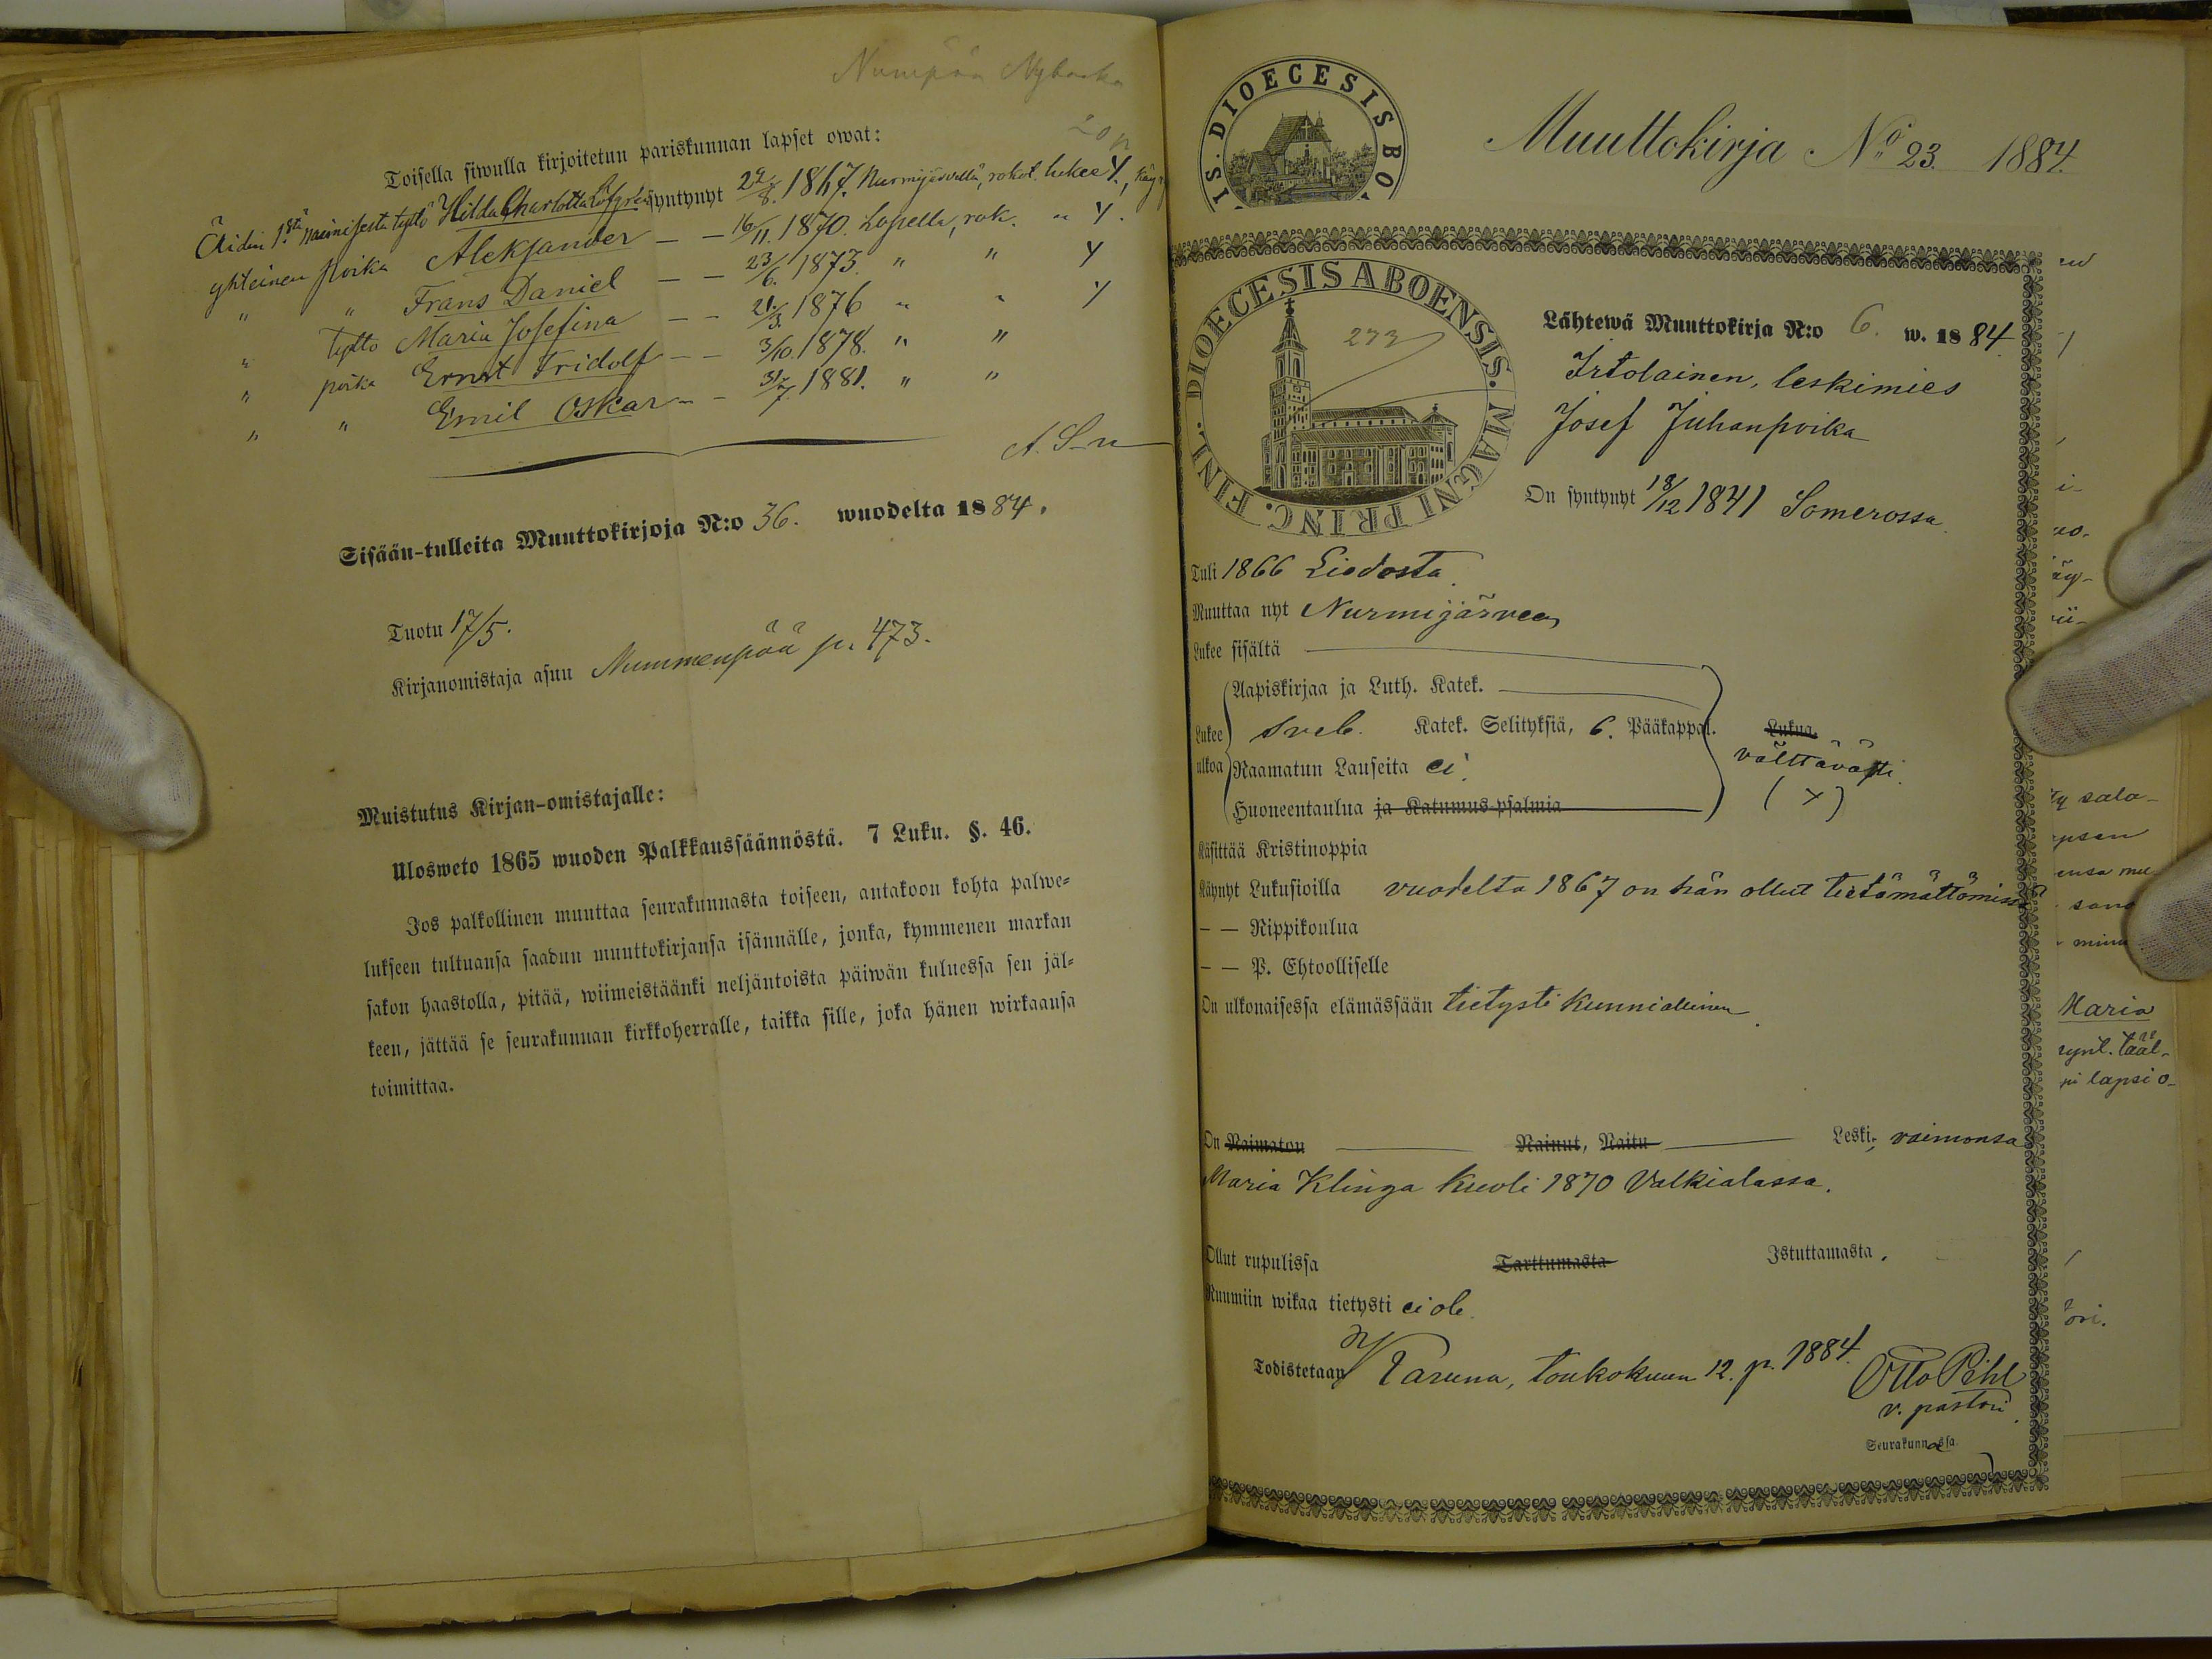 Numpää Nybacka
20
Toisella siwulla kirjoitetun pariskunnan lapset owat:
Äidin 1stä naimisesta tyttö Hilda Charlotta Löfgrén syntynyt 22/8. 1867. Nurmijärvellä, rokot. lukee Y., käy
yhteinen poika Aleksander — — 16/11. 1870. Lopella, rok. " Y.
" " Frans Daniel — — 23/6. 1873. " " Y
" tyttö Maria Josefina — — 21/3. 1876 " " Y
" poika Ernst Fridolf — — 3/10. 1878. " "
" " Emil Oskar — — 31/7. 1881. " "
A. S–n
Sisään-tulleita Muuttokirjoja N:o 36. wuodelta 1884.
Tuotu 17/5.
Kirjanomistaja asuu Nummenpää p. 473.
Muistutus Kirjan-omistajalle:
Ulosweto 1865 wuoden Palkkaussäännöstä. 7 Luku. §. 46.
Jos palkollinen muuttaa seurakunnasta toiseen, antakoon kohta palwe-
lukseen tultuansa saadun muuttokirjansa isännälle, jonka, kymmenen markan
sakon haastolla, pitää, wiimeistäänki neljäntoista päiwän kuluessa sen jäl-
keen, jättää se seurakunnan kirkkoherralle, taikka sille, joka hänen wirkaansa
toimittaa.
IS. DIOECESIS BO
Muuttokirja No 23. 1884.
DIOECESIS ABOENSIS. MAGNI PRINC. FINL.
273
Lähtewä Muuttokirja N:o 6. w. 1884.
Irtolainen, leskimies
Josef Juhanpoika
On syntynyt 18/12 1841 Somerossa.
Tuli 1866 Liedosta.
Muuttaa nyt Nurmijärveen
Lukee sisältä
Aapiskirjaa ja Luth. Katek.
Lukee Sveb. Katek. Selityksiä, 6. Pääkappal. Lukua.
ulkoa Raamatun Lauseita ei. välttävästi.
Huoneentaulua ja Katumus-psalmia (×)
Käsittää Kristinoppia
Käynyt Lukusioilla vuodelta 1867 on hän ollut tietämättömissä
— — Rippikoulua
— — P. Ehtoolliselle
On ulkonaisessa elämässään tietysti kunniallinen.
On Naimaton Nainut, Naitu Leski, vaimonsa
Maria Klinga kuoli 1870 Valkialassa.
Ollut rupulissa Tarttumasta Istuttamasta.
Ruumiin wikaa tietysti ei ole.
Todistetaan Taruna, toukokuun 12. p. 1884.
Otto Pihl
v. pastori.
Seurakunnassa.
sala-
sano
Maria
synt. tääl-
lapsi o-